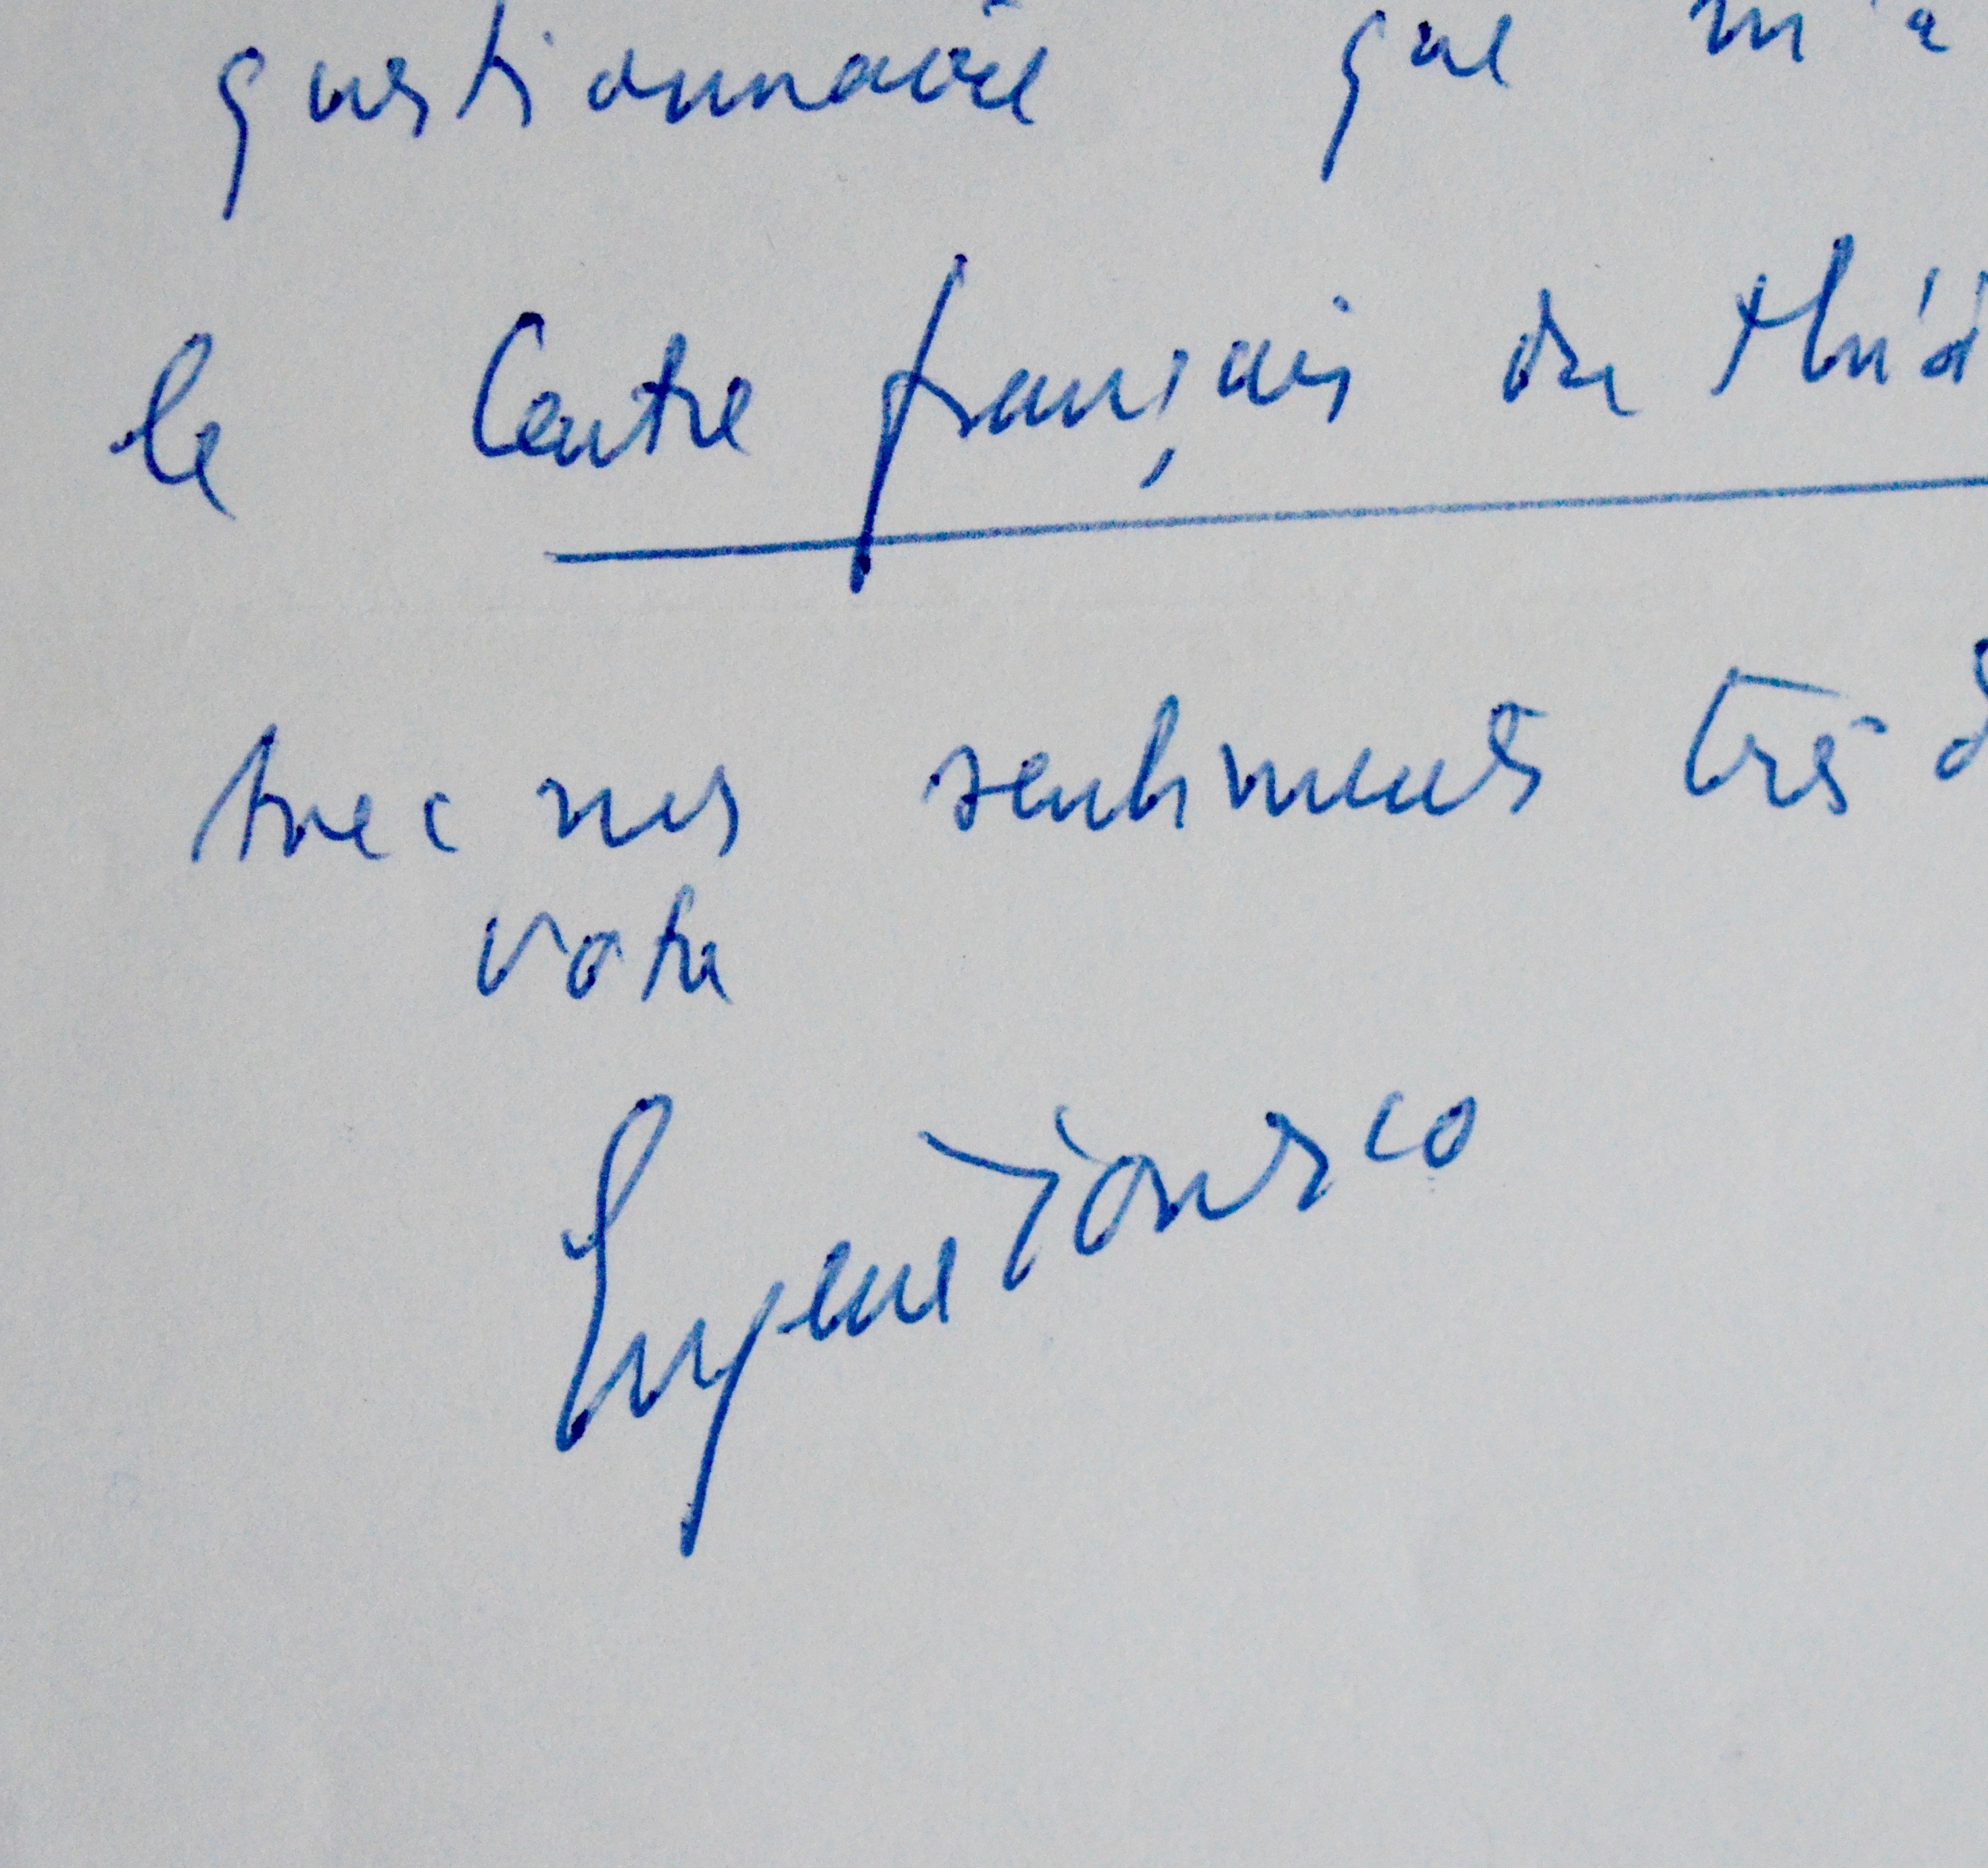 questionnaire que m'a
le Centre français du théâ
Avec mes sentiments très d
votre
Eugène Ionesco